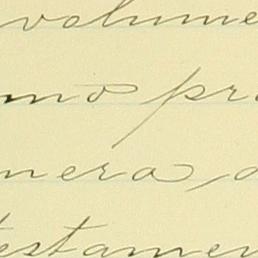 volume
mo pr
nera, a
testamen